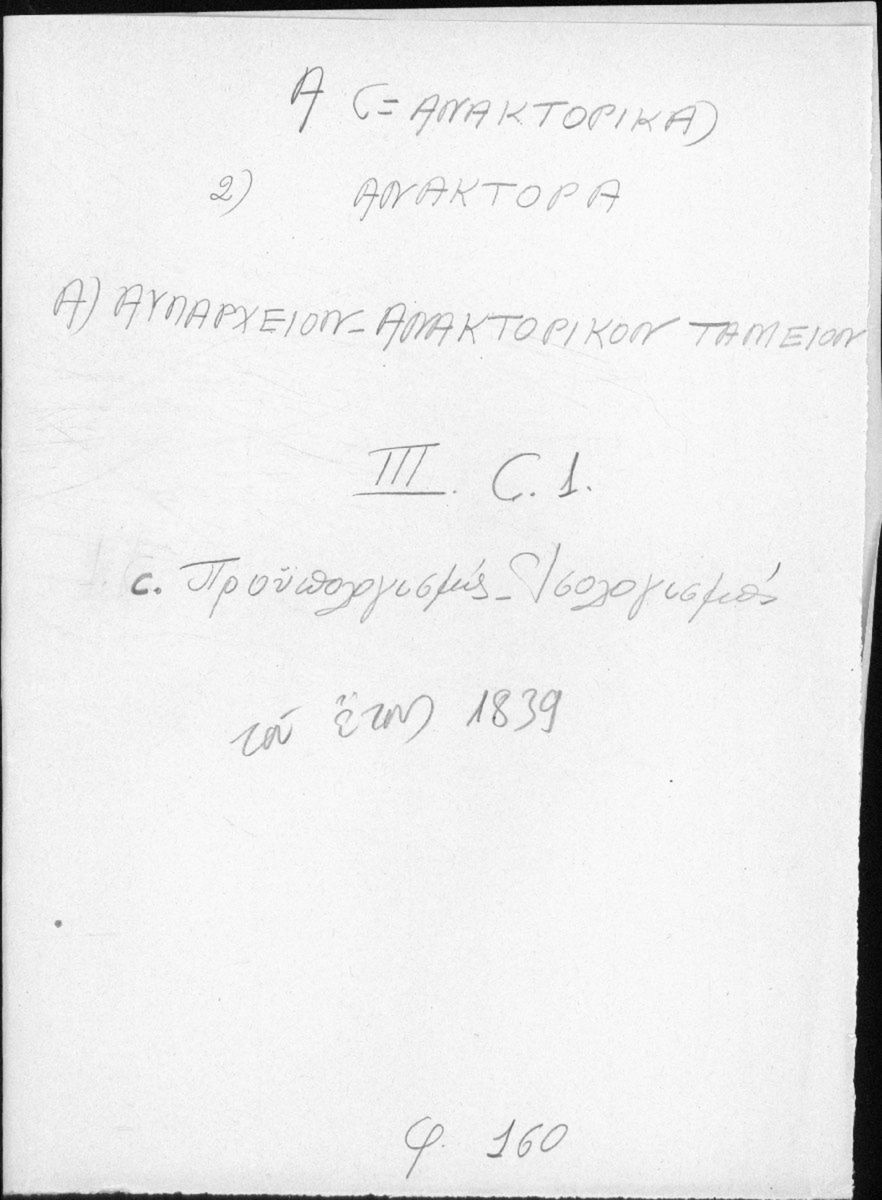 Α (=ΑΝΑΚΤΟΡΙΚΑ)
2) ΑΝΑΚΤΟΡΑ
Α) ΑΥΛΑΡΧΕΙΟΝ - ΑΝΑΚΤΟΡΙΚΟΝ ΤΑΜΕΙΟΝ
III. C. 1.
c. Προϋπολογισμός - Ἰσολογισμός
τοῦ ἔτους 1839
φ. 160